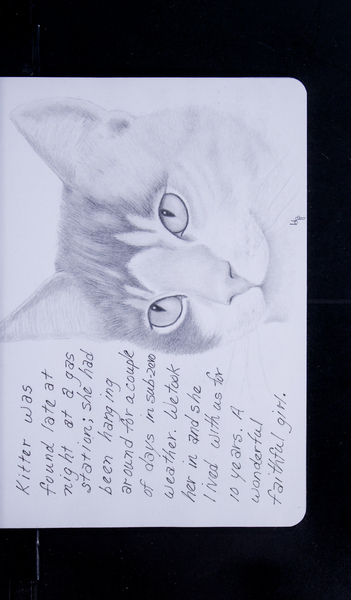 Kitter was
found late at
night at a gas
station; she had
been hanging
around for a couple
of days in sub-zero
weather. We took
her in and she
lived with us for
10 years. A
wonderful
faithful girl.